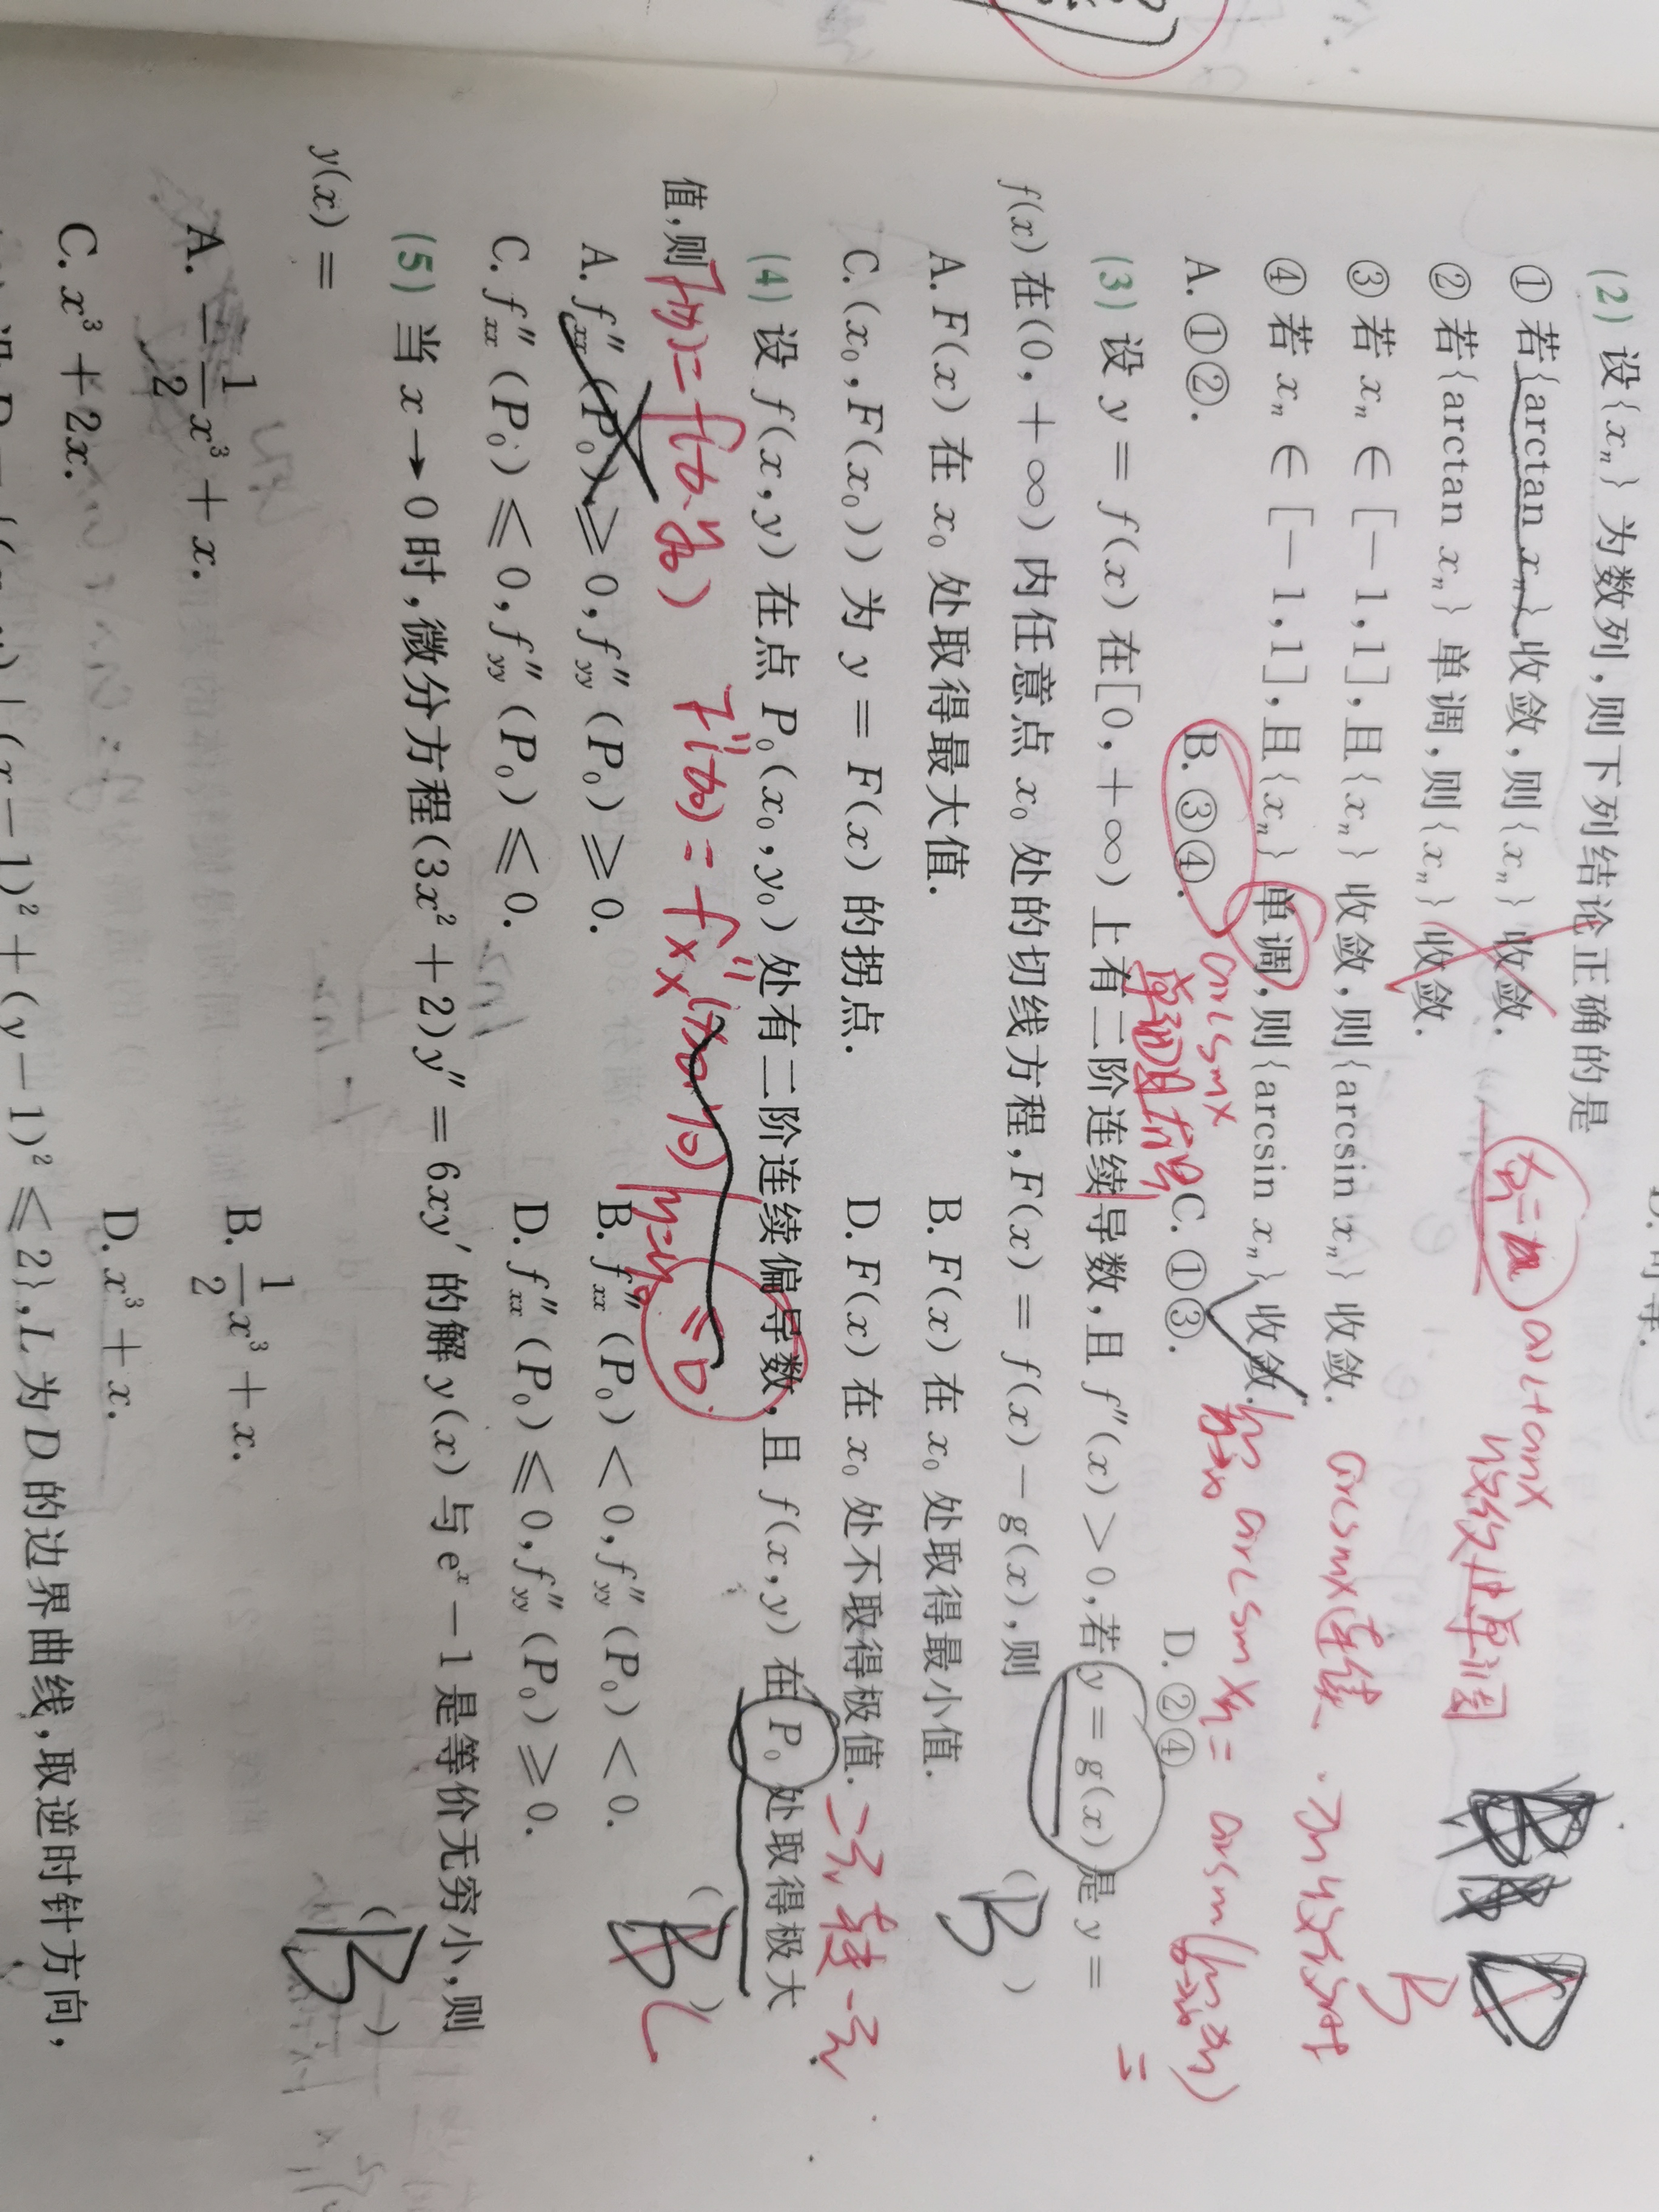 (2) 设{xₙ}为数列,则下列结论正确的是
① 若{arctan xₙ}收敛,则{xₙ}收敛.
② 若{arctan xₙ}单调,则{xₙ}收敛.
③ 若 xₙ ∈ [-1,1],且{xₙ}收敛,则{arcsin xₙ}收敛.
④ 若 xₙ ∈ [-1,1],且{xₙ}单调,则{arcsin xₙ}收敛.
A. ①②. B. ③④. C. ①③. D. ②④.
arctanx
arcsinx连续
B
arcsinx
单调且有界
lim arcsin xₙ = arcsin(lim xₙ)
(3) 设 y = f(x) 在[0, +∞) 上有二阶连续导数,且 f″(x) > 0,若 y = g(x) 是 y =
f(x) 在(0, +∞) 内任意点 x₀ 处的切线方程,F(x) = f(x) - g(x),则 ( B )
A. F(x) 在 x₀ 处取得最大值. B. F(x) 在 x₀ 处取得最小值.
C. (x₀,F(x₀)) 为 y = F(x) 的拐点. D. F(x) 在 x₀ 处不取得极值.
二元转一元
(4) 设 f(x,y) 在点 P₀(x₀,y₀) 处有二阶连续偏导数,且 f(x,y) 在 P₀ 处取得极大
值,则 ( B ) C
A. f″ₓₓ(P₀) ⩾ 0,f″yy(P₀) ⩾ 0. B. f″ₓₓ(P₀) < 0,f″yy(P₀) < 0.
C. f″ₓₓ(P₀) ⩽ 0,f″yy(P₀) ⩽ 0. D. f″ₓₓ(P₀) ⩽ 0,f″yy(P₀) ⩾ 0.
(5) 当 x → 0 时,微分方程(3x² + 2)y″ = 6xy′ 的解 y(x) 与 eˣ - 1 是等价无穷小,则
y(x) = ( B )
A. -1/2 x³ + x. B. 1/2 x³ + x.
C. x³ + 2x. D. x³ + x.
(x - 1)² + (y - 1)² ⩽ 2},L 为 D 的边界曲线,取逆时针方向,